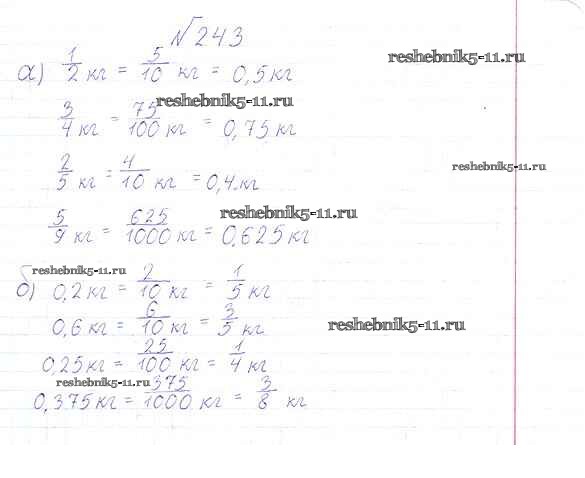 №243
reshebnik5-11.ru
а) 1/2 кг = 5/10 кг = 0,5 кг
reshebnik5-11.ru
3/4 кг = 75/100 кг = 0,75 кг
reshebnik5-11.ru
2/5 кг = 4/10 кг = 0,4 кг
reshebnik5-11.ru
5/9 кг = 625/1000 кг = 0,625 кг
reshebnik5-11.ru
б) 0,2 кг = 2/10 кг = 1/5 кг
0,6 кг = 6/10 кг = 3/5 кг
reshebnik5-11.ru
0,25 кг = 25/100 кг = 1/4 кг
reshebnik5-11.ru
0,375 кг = 375/1000 кг = 3/8 кг